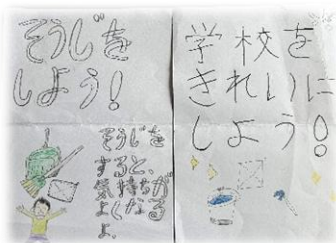 そうじを
しよう!
そうじを
すると、
気持ちが
よくなる
よ。
学校を
きれいに
しよう!